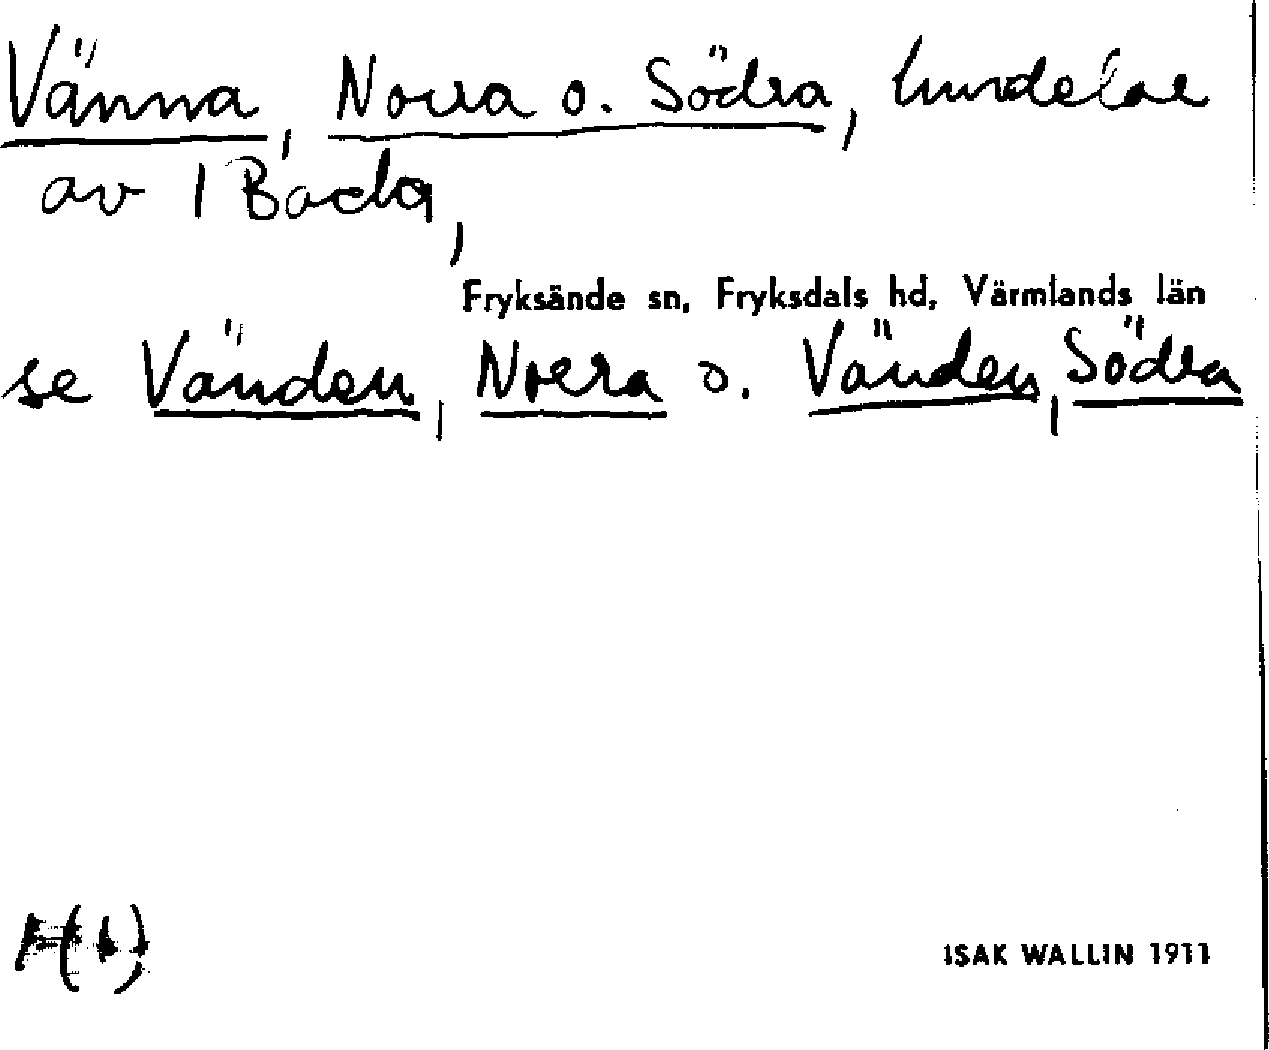 Vänna, Norra o. Södra, hmdelar
av 1 Backa,
Fryksände sn, Fryksdals hd, Värmlands län
se Vänden, Norra o. Vänden, Södra
ISAK WALLIN 1911